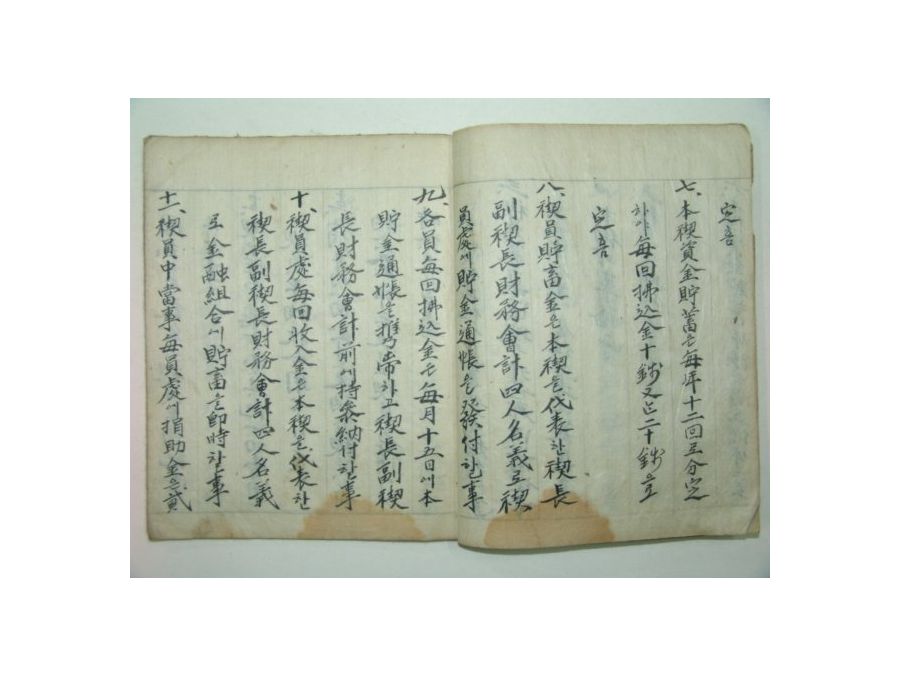 定흠
七、本禊資金貯蓄은每年十二回로分定
하야每回拂込金十錢又는二十錢으로
定흠
八、禊員貯畜金은本禊을代表한禊長
副禊長財務會計四人名義로禊
員處에貯金通帳을發付할事
九、各員每回拂込金은每月十五日에本
貯金通帳을携帶하고禊長副禊
長財務會計前에持參納付할事
十、禊員處每回收入金은本禊을代表한
禊長副禊長財務會計四人名義
로金融組合에貯畜을卽時할事
十一、禊員中當事每員處에捐助金은貳